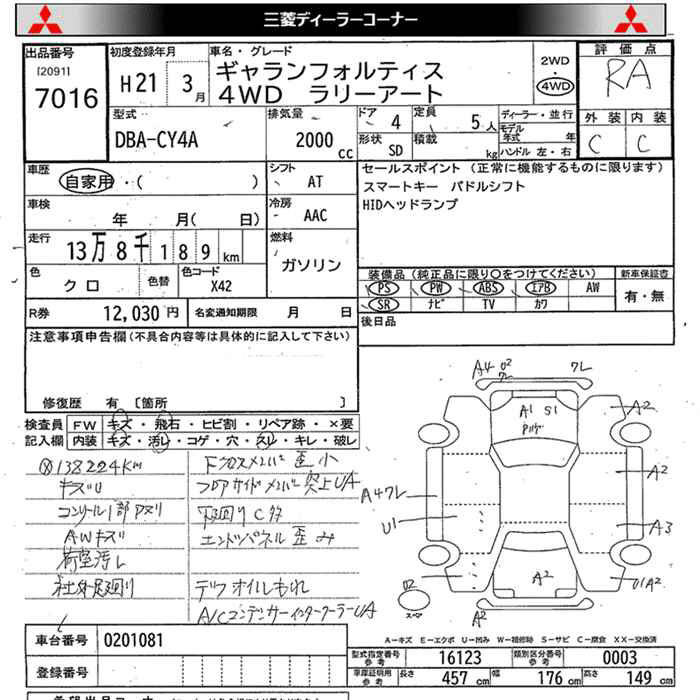 三菱ディーラーコーナー
出品番号 初度登録年月 車名・グレード 2WD・4WD 評価点
[2091] 7016 H21 3月 ギャランフォルティス RA
4WD ラリーアート
型式 排気量 ドア 4 定員 5人 ディーラー・並行 外装 内装
DBA-CY4A 2000cc 形状 SD 積載 kg モデル年式 年 C C
ハンドル 左・右
車歴 シフト セールスポイント (正常に機能するものに限ります)
自家用・( ) AT スマートキー パドルシフト
車検 冷房 HIDヘッドランプ
年 月( 日) AAC
走行 燃料
13万8千189km ガソリン
色 色替 色コード 装備品(純正品に限り○をつけてください) 新車保証書
クロ X42 PS PW ABS エアB AW 有・無
R券 12,030円 名変通知期限 月 日 SR ナビ TV カワ
注意事項申告欄(不具合内容等は具体的に記入して下さい) 後日品
修復歴 有 [箇所 ]
検査員 FW キズ・飛石・ヒビ割・リペア跡・×要
記入欄 内装 キズ・汚レ・コゲ・穴・スレ・キレ・破レ
138224Km 下クロスメンバ 歪 小
キズU フロアサイドメンバ 突上UA
コンソール1部 下廻りC多
AWキズ エンドパネル 歪み
荷室汚レ
社外足廻り デフオイルもれ
A/Cコンデンサーインタークーラー UA
A4 02 ワレ ワレ
A1 S1
A2
A2
A4ワレ
U1
A3
A2
U1A2
02
スペア
A2
A-キズ E-エクボ U-凹み W-補修跡 S-サビ C-腐食 XX-交換済
車台番号 0201081
型式指定番号 参考 16123 類別区分番号 参考 0003
登録番号
車庫証明用 参考 長さ 457 cm 幅 176 cm 高さ 149 cm